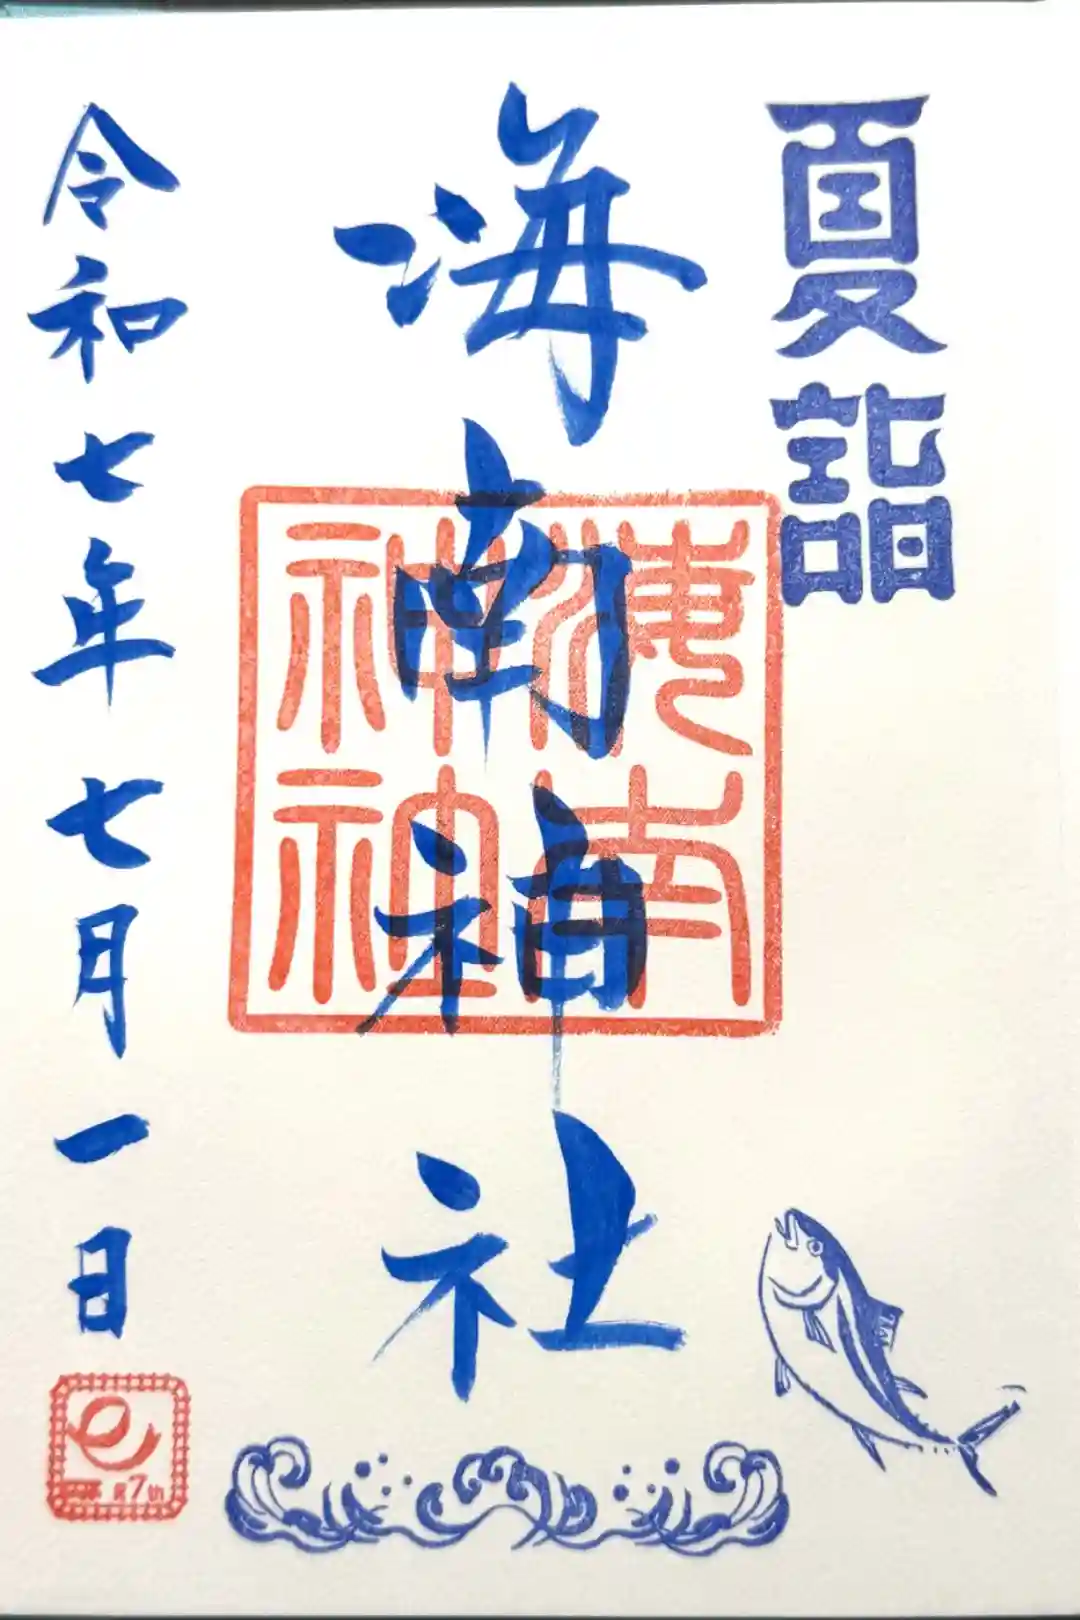 夏詣
海南神社
海南
神社
令和七年七月一日
7th